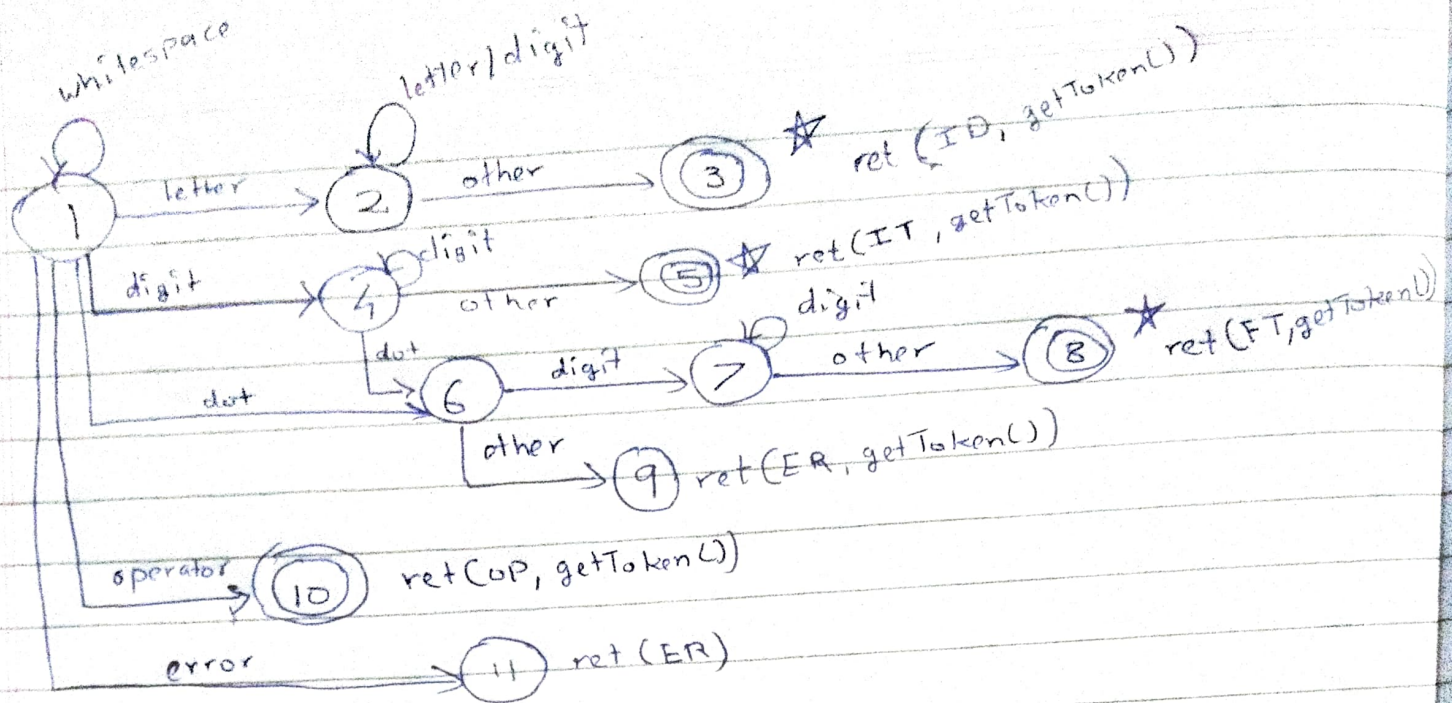 whitespace
letter/digit
1 letter 2 other 3 ret (ID, getToken())
digit 4 digit other 5 ret (IT, getToken())
dot dot 6 digit 7 digit other 8 ret (FT, getToken())
other 9 ret (ER, getToken())
operator 10 ret (OP, getToken())
error 11 ret (ER)